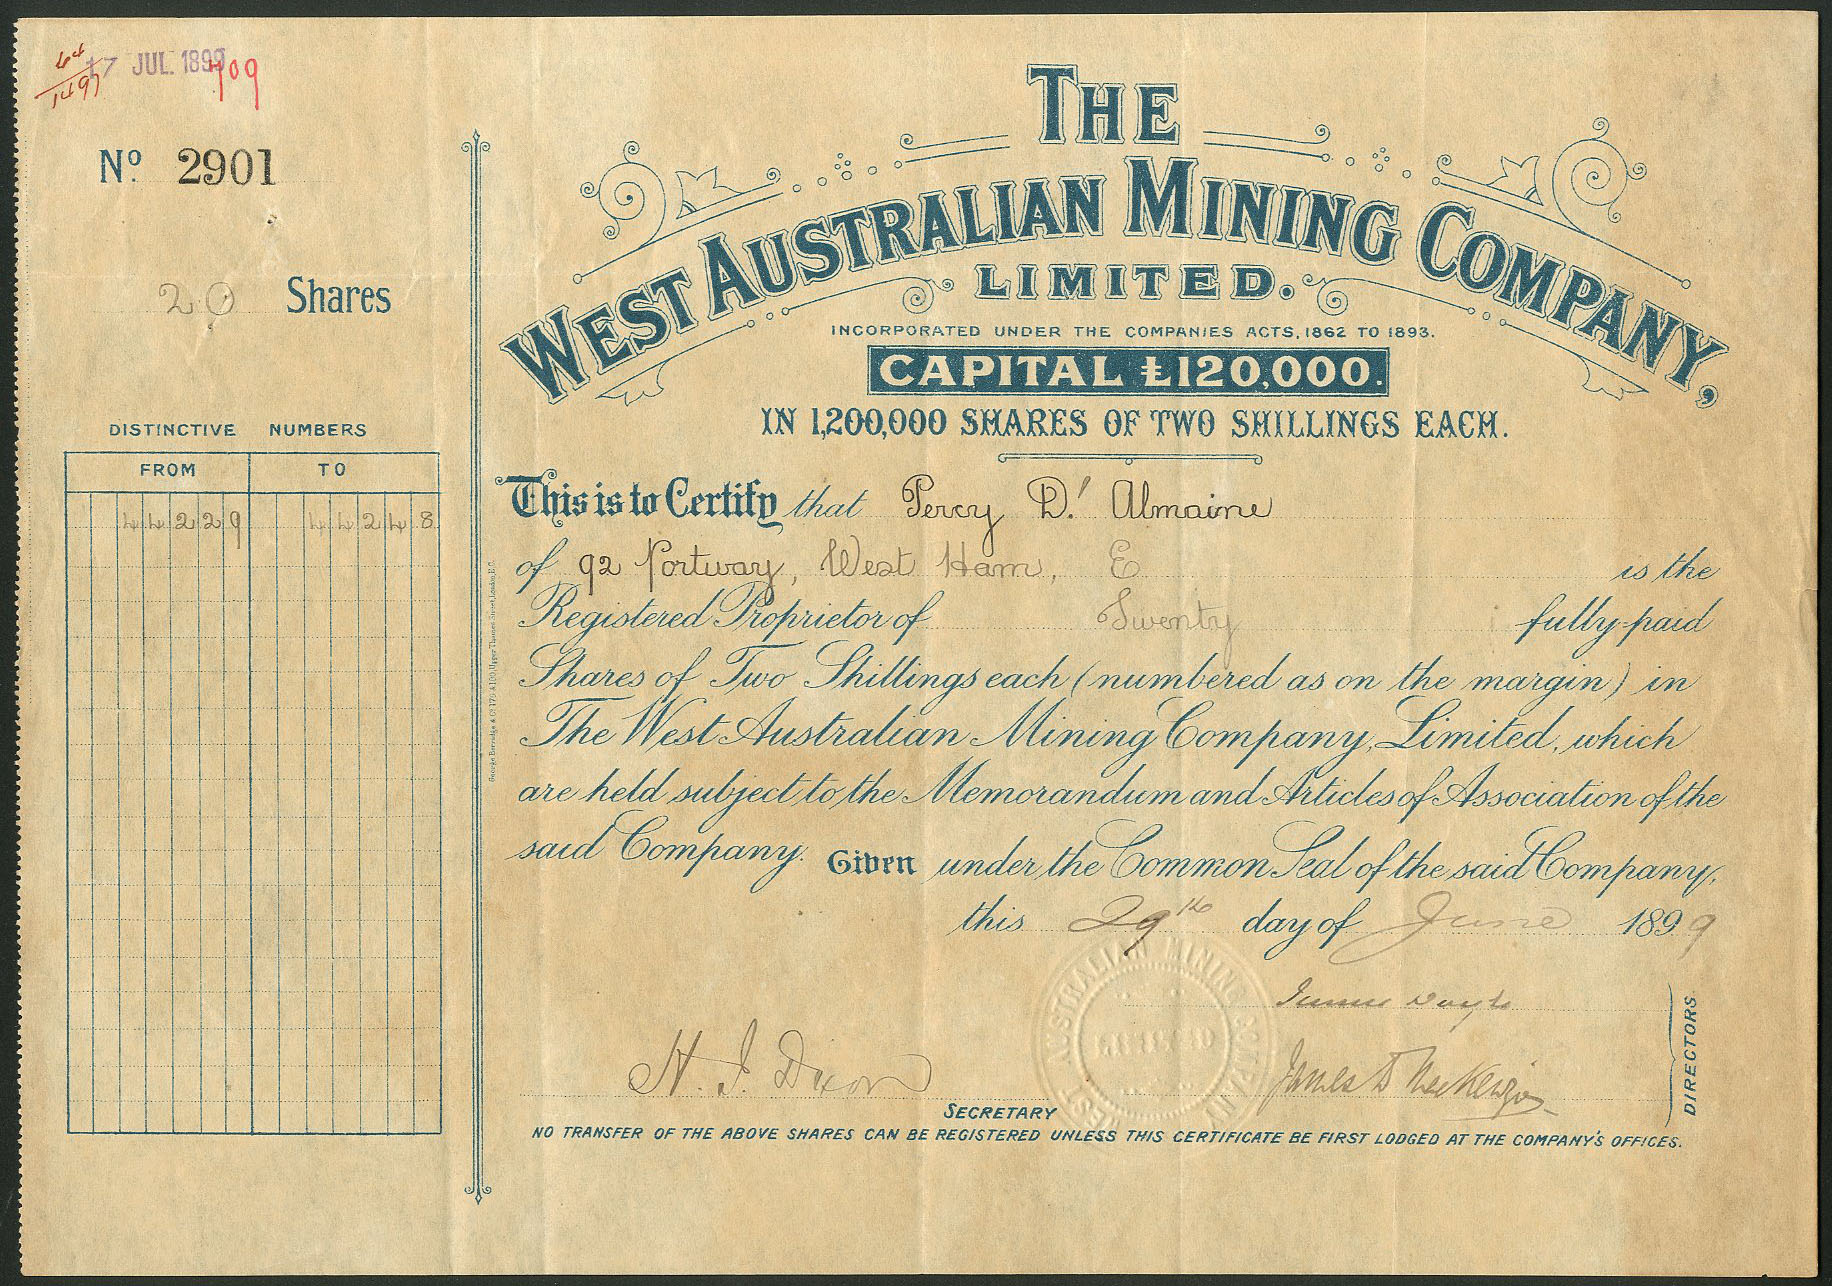 17 JUL. 1899
64
1497
709
No. 2901
20 Shares
DISTINCTIVE NUMBERS
FROM TO
44229 44248
THE
WEST AUSTRALIAN MINING COMPANY,
LIMITED.
INCORPORATED UNDER THE COMPANIES ACTS, 1862 TO 1893.
CAPITAL £120,000.
IN 1,200,000 SHARES OF TWO SHILLINGS EACH.
This is to Certify that Percy D'Almaine
of 92 Portway, West Ham, E is the
Registered Proprietor of Twenty fully-paid
Shares of Two Shillings each (numbered as on the margin) in
The West Australian Mining Company, Limited, which
are held subject to the Memorandum and Articles of Association of the
said Company. Given under the Common Seal of the said Company,
this 29th day of June 1899
James D Mackenzie
DIRECTORS
H. J. Dixon
SECRETARY
WEST AUSTRALIAN MINING COMPANY
LIMITED
NO TRANSFER OF THE ABOVE SHARES CAN BE REGISTERED UNLESS THIS CERTIFICATE BE FIRST LODGED AT THE COMPANY'S OFFICES.